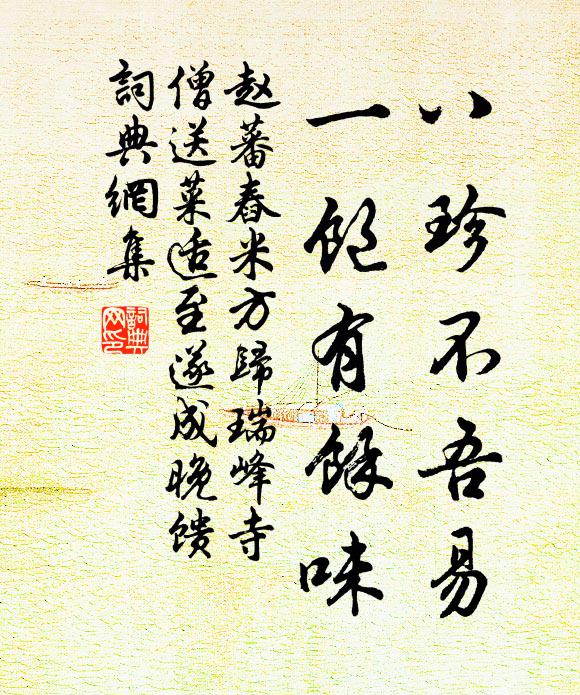 八珍不吾易
一飽有餘味
赵蕃舂米方歸瑞峰寺
僧送菜适至遂成晚馈
詞典網集
詞典网印